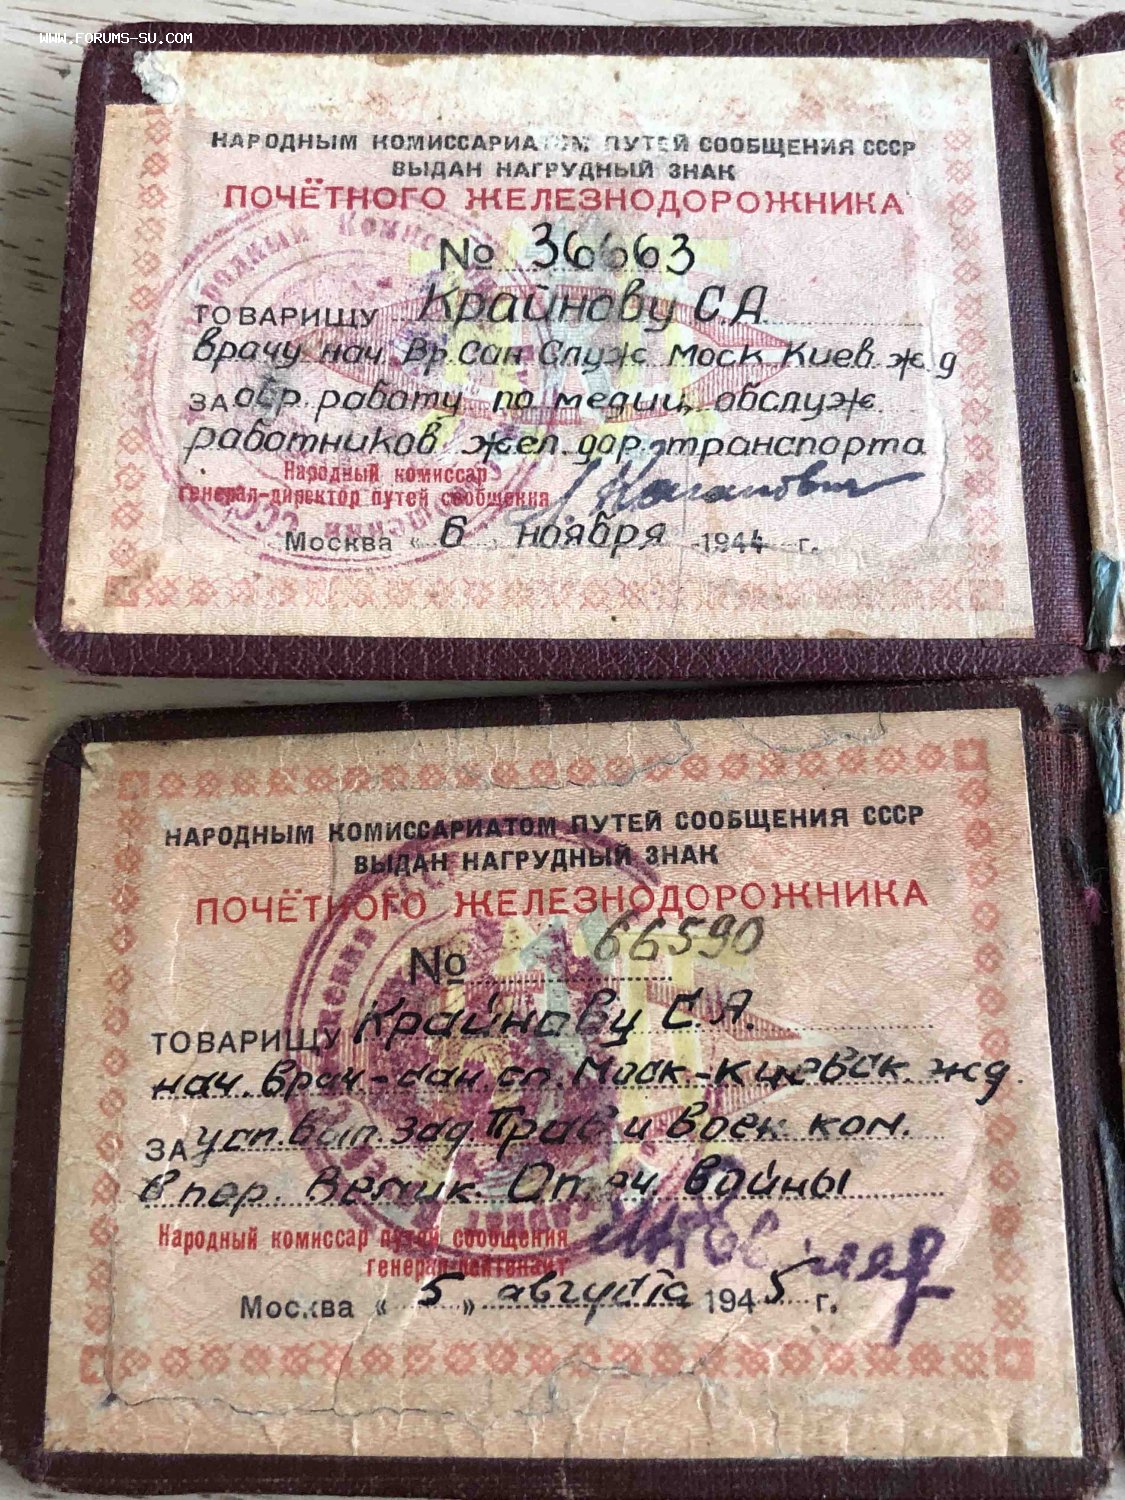 WWW.FORUMS-SU.COM
НАРОДНЫМ КОМИССАРИАТОМ ПУТЕЙ СООБЩЕНИЯ СССР
ВЫДАН НАГРУДНЫЙ ЗНАК
ПОЧЁТНОГО ЖЕЛЕЗНОДОРОЖНИКА
№ 36663
ТОВАРИЩУ Крайнову С.А.
врачу нач. Вр. Сан Служ. Моск Киев. ж.д
ЗА обр. работу по медиц. обслуж.
работников жел. дор. транспорта
Народный комиссар
генерал-директор путей сообщения
Москва « 6 » ноября 1944 г.
НАРОДНЫМ КОМИССАРИАТОМ ПУТЕЙ СООБЩЕНИЯ СССР
ВЫДАН НАГРУДНЫЙ ЗНАК
ПОЧЁТНОГО ЖЕЛЕЗНОДОРОЖНИКА
№ 66590
ТОВАРИЩУ Крайнову С.А.
нач. врач-сан. сл. Моск-Киевск. жд.
ЗА усп. вып. зад Прав и Воен. ком.
в пер. Велик. Отеч. войны
Народный комиссар путей сообщения
генерал-лейтенант
Москва « 5 » августа 1945 г.